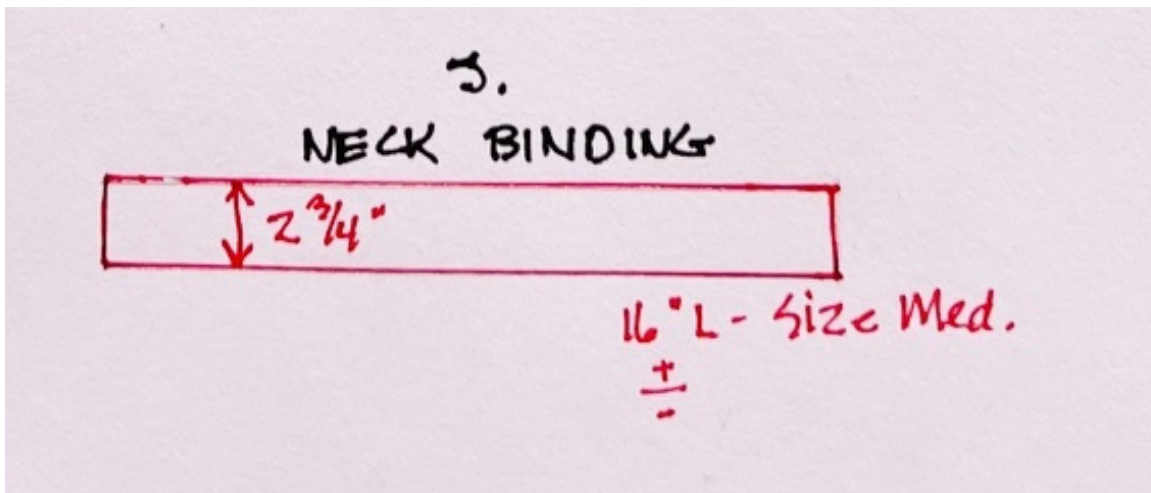 3.
NECK BINDING
2 3/4"
16" L - Size Med.
+
-